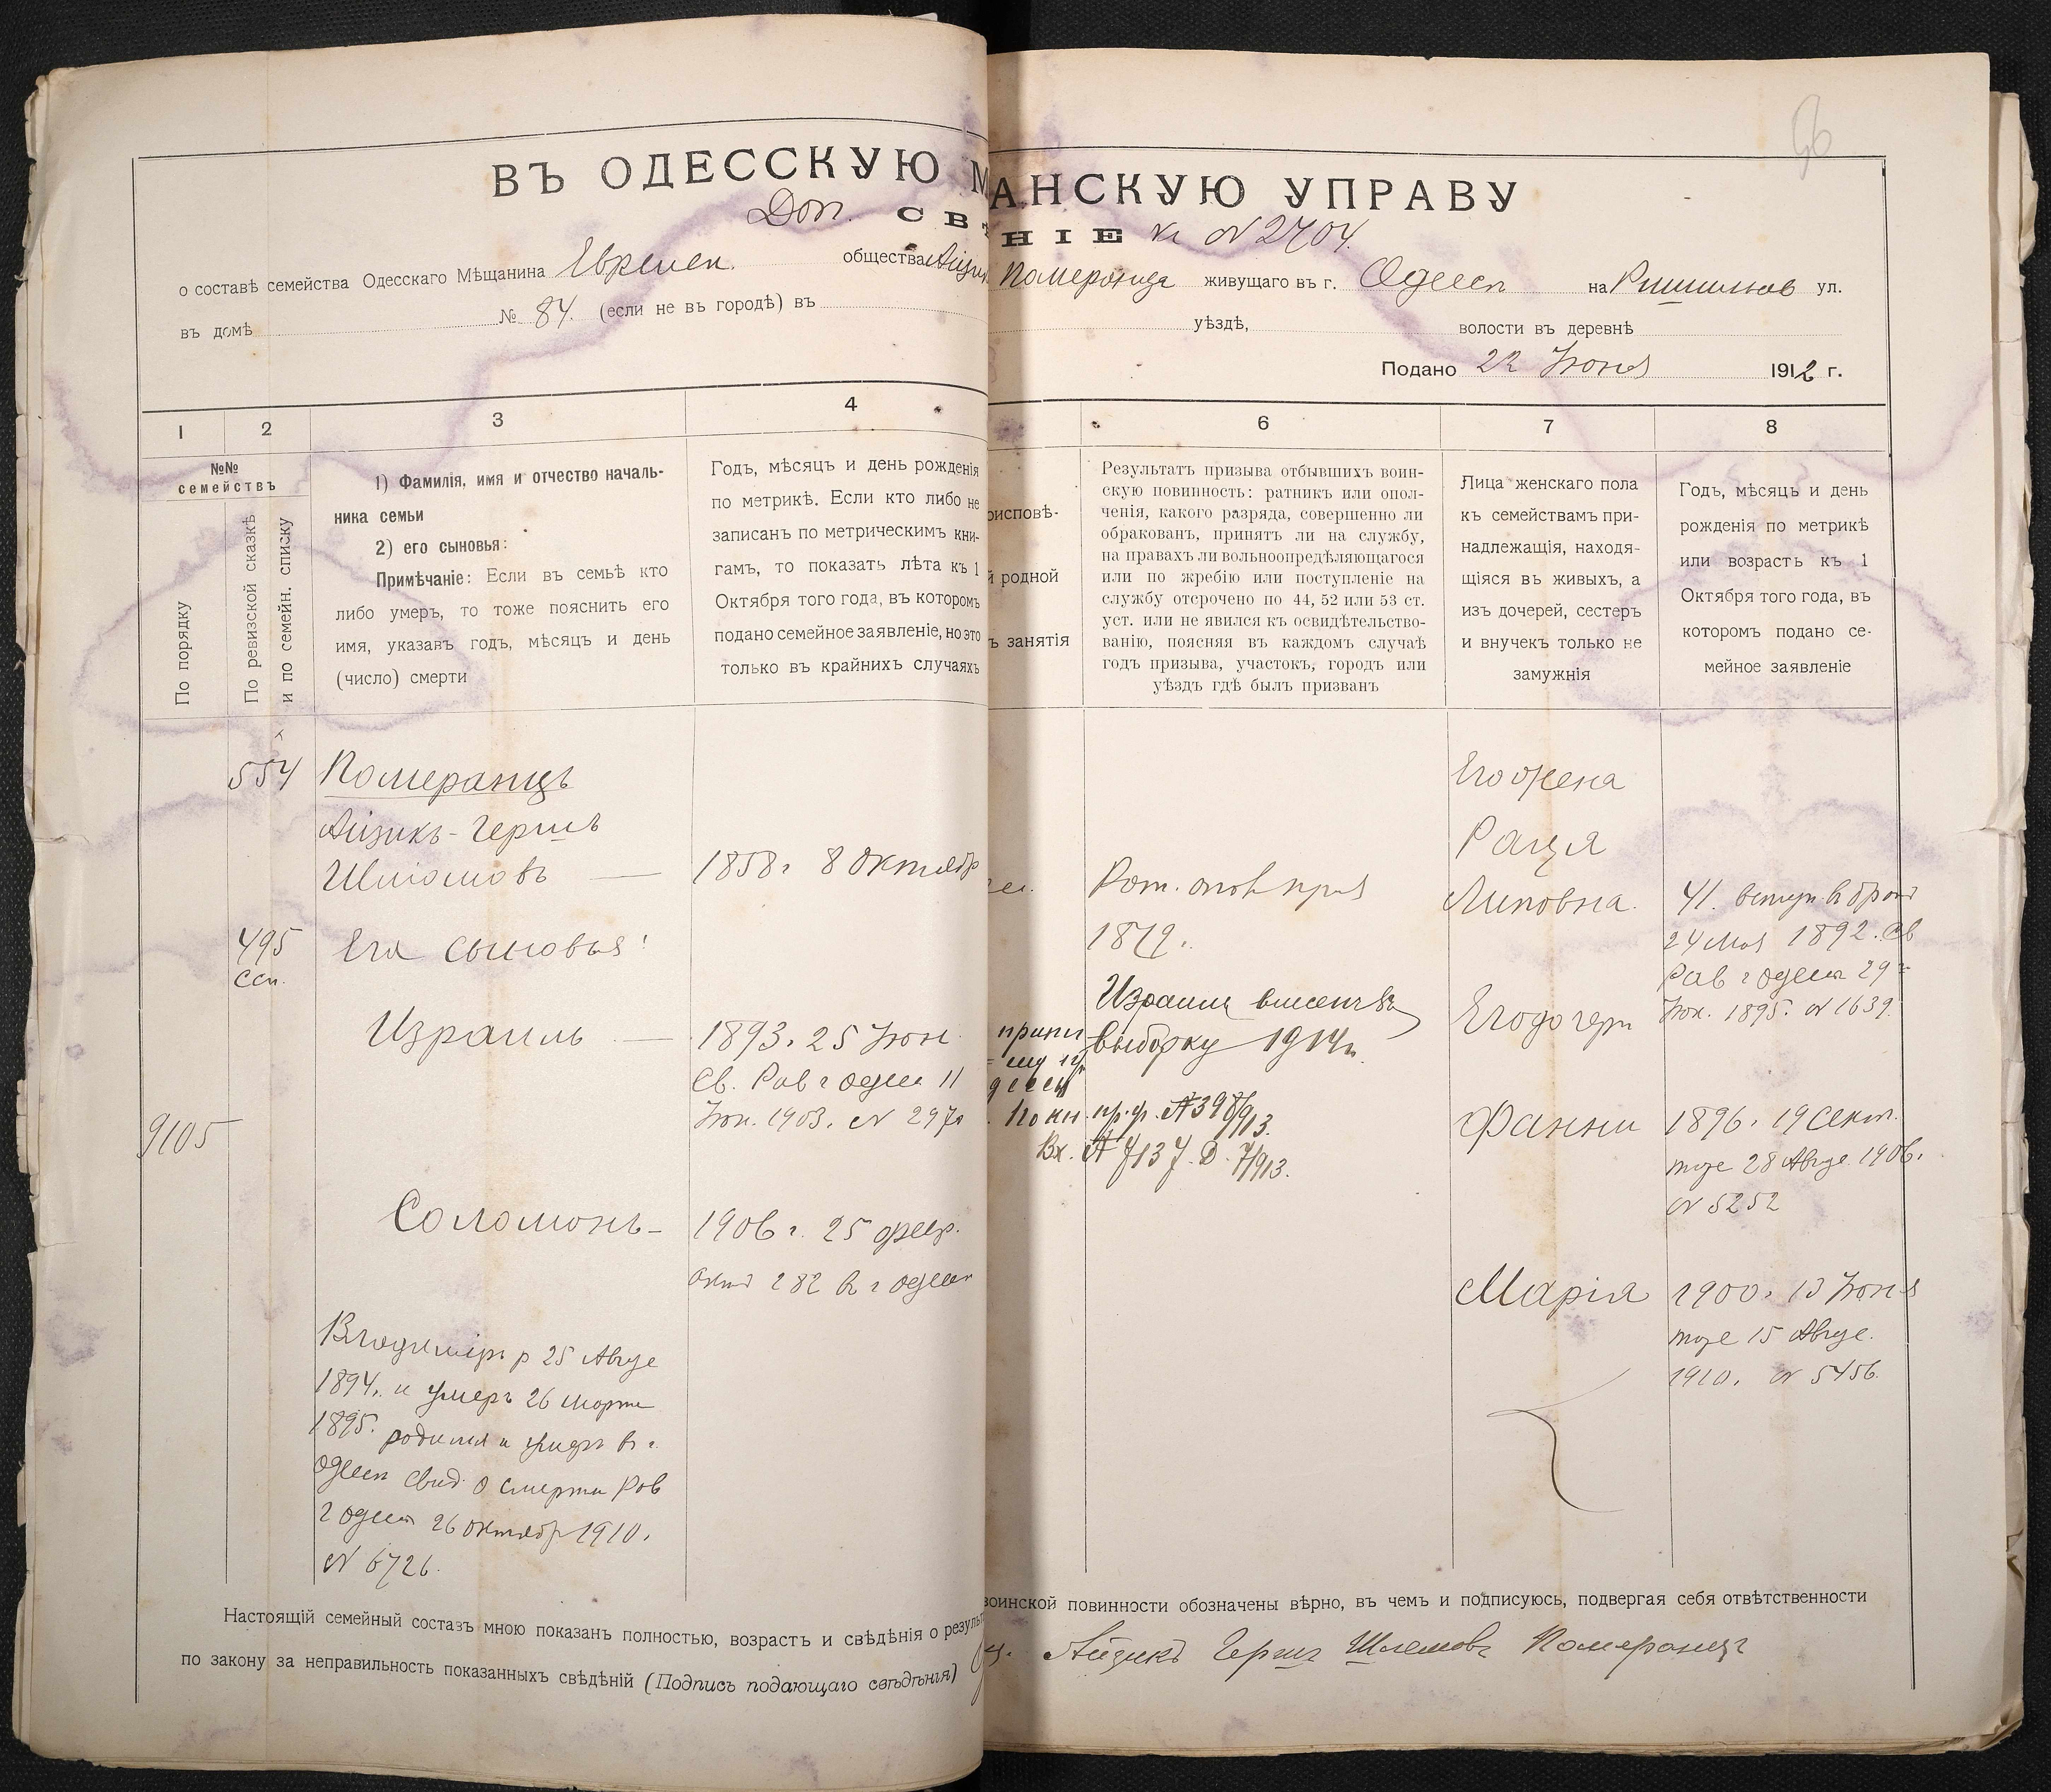 56
ВЪ ОДЕССКУЮ М АНСКУЮ УПРАВУ
Доп. СВѢ НІЕ къ № 2704.
о составѣ семейства Одесскаго Мѣщанина Евреиск. общества Айзик Померанца живущаго въ г. Одессѣ на Ришильев ул.
въ домѣ № 84. (если не въ городѣ) въ уѣздѣ, волости въ деревнѣ
Подано 22 Іюня 1912 г.
1 2 3 4 6 7 8
№№ семействъ
По порядку
По ревизской сказкѣ
и по семейн. списку
1) Фамилія, имя и отчество началь-
ника семьи
2) его сыновья:
Примѣчаніе: Если въ семьѣ кто
либо умеръ, то тоже пояснить его
имя, указавъ годъ, мѣсяцъ и день
(число) смерти
Годъ, мѣсяцъ и день рожденія
по метрикѣ. Если кто либо не
записанъ по метрическимъ кни-
гамъ, то показать лѣта къ 1
Октября того года, въ которомъ
подано семейное заявленіе, но это
только въ крайнихъ случаяхъ
роисповѣ-
й родной
ъ занятія
Результатъ призыва отбывшихъ воин-
скую повинность: ратникъ или опол-
ченія, какого разряда, совершенно ли
обракованъ, принятъ ли на службу,
на правахъ ли вольноопредѣляющагося
или по жребію или поступленіе на
службу отсрочено по 44, 52 или 53 ст.
уст. или не явился къ освидѣтельство-
ванію, поясняя въ каждомъ случаѣ
годъ призыва, участокъ, городъ или
уѣздъ гдѣ былъ призванъ
Лица женскаго пола
къ семействамъ при-
надлежащія, находя-
щіяся въ живыхъ, а
изъ дочерей, сестеръ
и внучекъ только не
замужнія
Годъ, мѣсяцъ и день
рожденія по метрикѣ
или возрастъ къ 1
Октября того года, въ
которомъ подано се-
мейное заявленіе
554 Померанцъ
Айзикъ-Гершъ
Шліомовъ — 1858 г 8 Октябр
495 Его сыновья:
ссп.
Израиль — 1893. 25 Іюн.
Св. Рав г Одес 11
Іюн. 1903. № 2970
9105
Соломонъ - 1906 г. 25 февр.
282 в г Одесс
Владиміръ р 25 Авгус
1894. и умеръ 26 Марта
1895. родился и умеръ в г.
Одессѣ Свид о смерти Рав
г Одессы 26 Октябр 1910.
№ 6726.
Рат. опол приз
1879.
Израиль внесенъ въ
выборку 1914 г.
припи
По кн. пр. ф. № 398/913.
Вх. № 7137. Д. 7/913.
Его жена
Рація
Липовна. 41. вступ. в брак
24 Мая 1892. Св
Рав г Одессы 29
Іюн. 1895. № 1639.
Его дочери
Фанни 1896. 19 Сент.
тоже 28 Авгус. 1906.
№ 5252
Марія 1900. 13 Іюня
тоже 15 Авгус.
1910. № 5456.
Настоящій семейный составъ мною показанъ полностью, возрастъ и свѣдѣнія о резуль воинской повинности обозначены вѣрно, въ чемъ и подписуюсь, подвергая себя отвѣтственности
по закону за неправильность показанныхъ свѣдѣній (Подпись подающаго свѣдѣнія) Айзикъ Гершъ Шлемовъ Померанцъ